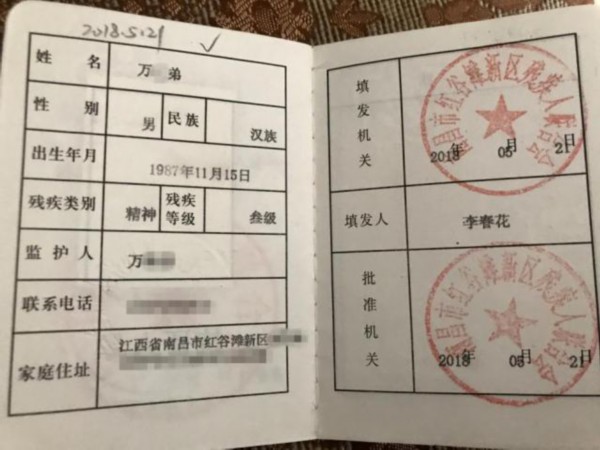 2018.5.21
姓名 万 弟
性别 男 民族 汉族
出生年月 1987年11月15日
残疾类别 精神 残疾等级 叁级
监护人 万
联系电话
家庭住址 江西省南昌市红谷滩新区
填发机关 南昌市红谷滩新区残疾人联合会
2018年 05月 21日
填发人 李春花
批准机关 南昌市红谷滩新区残疾人联合会
2018年 05月 21日